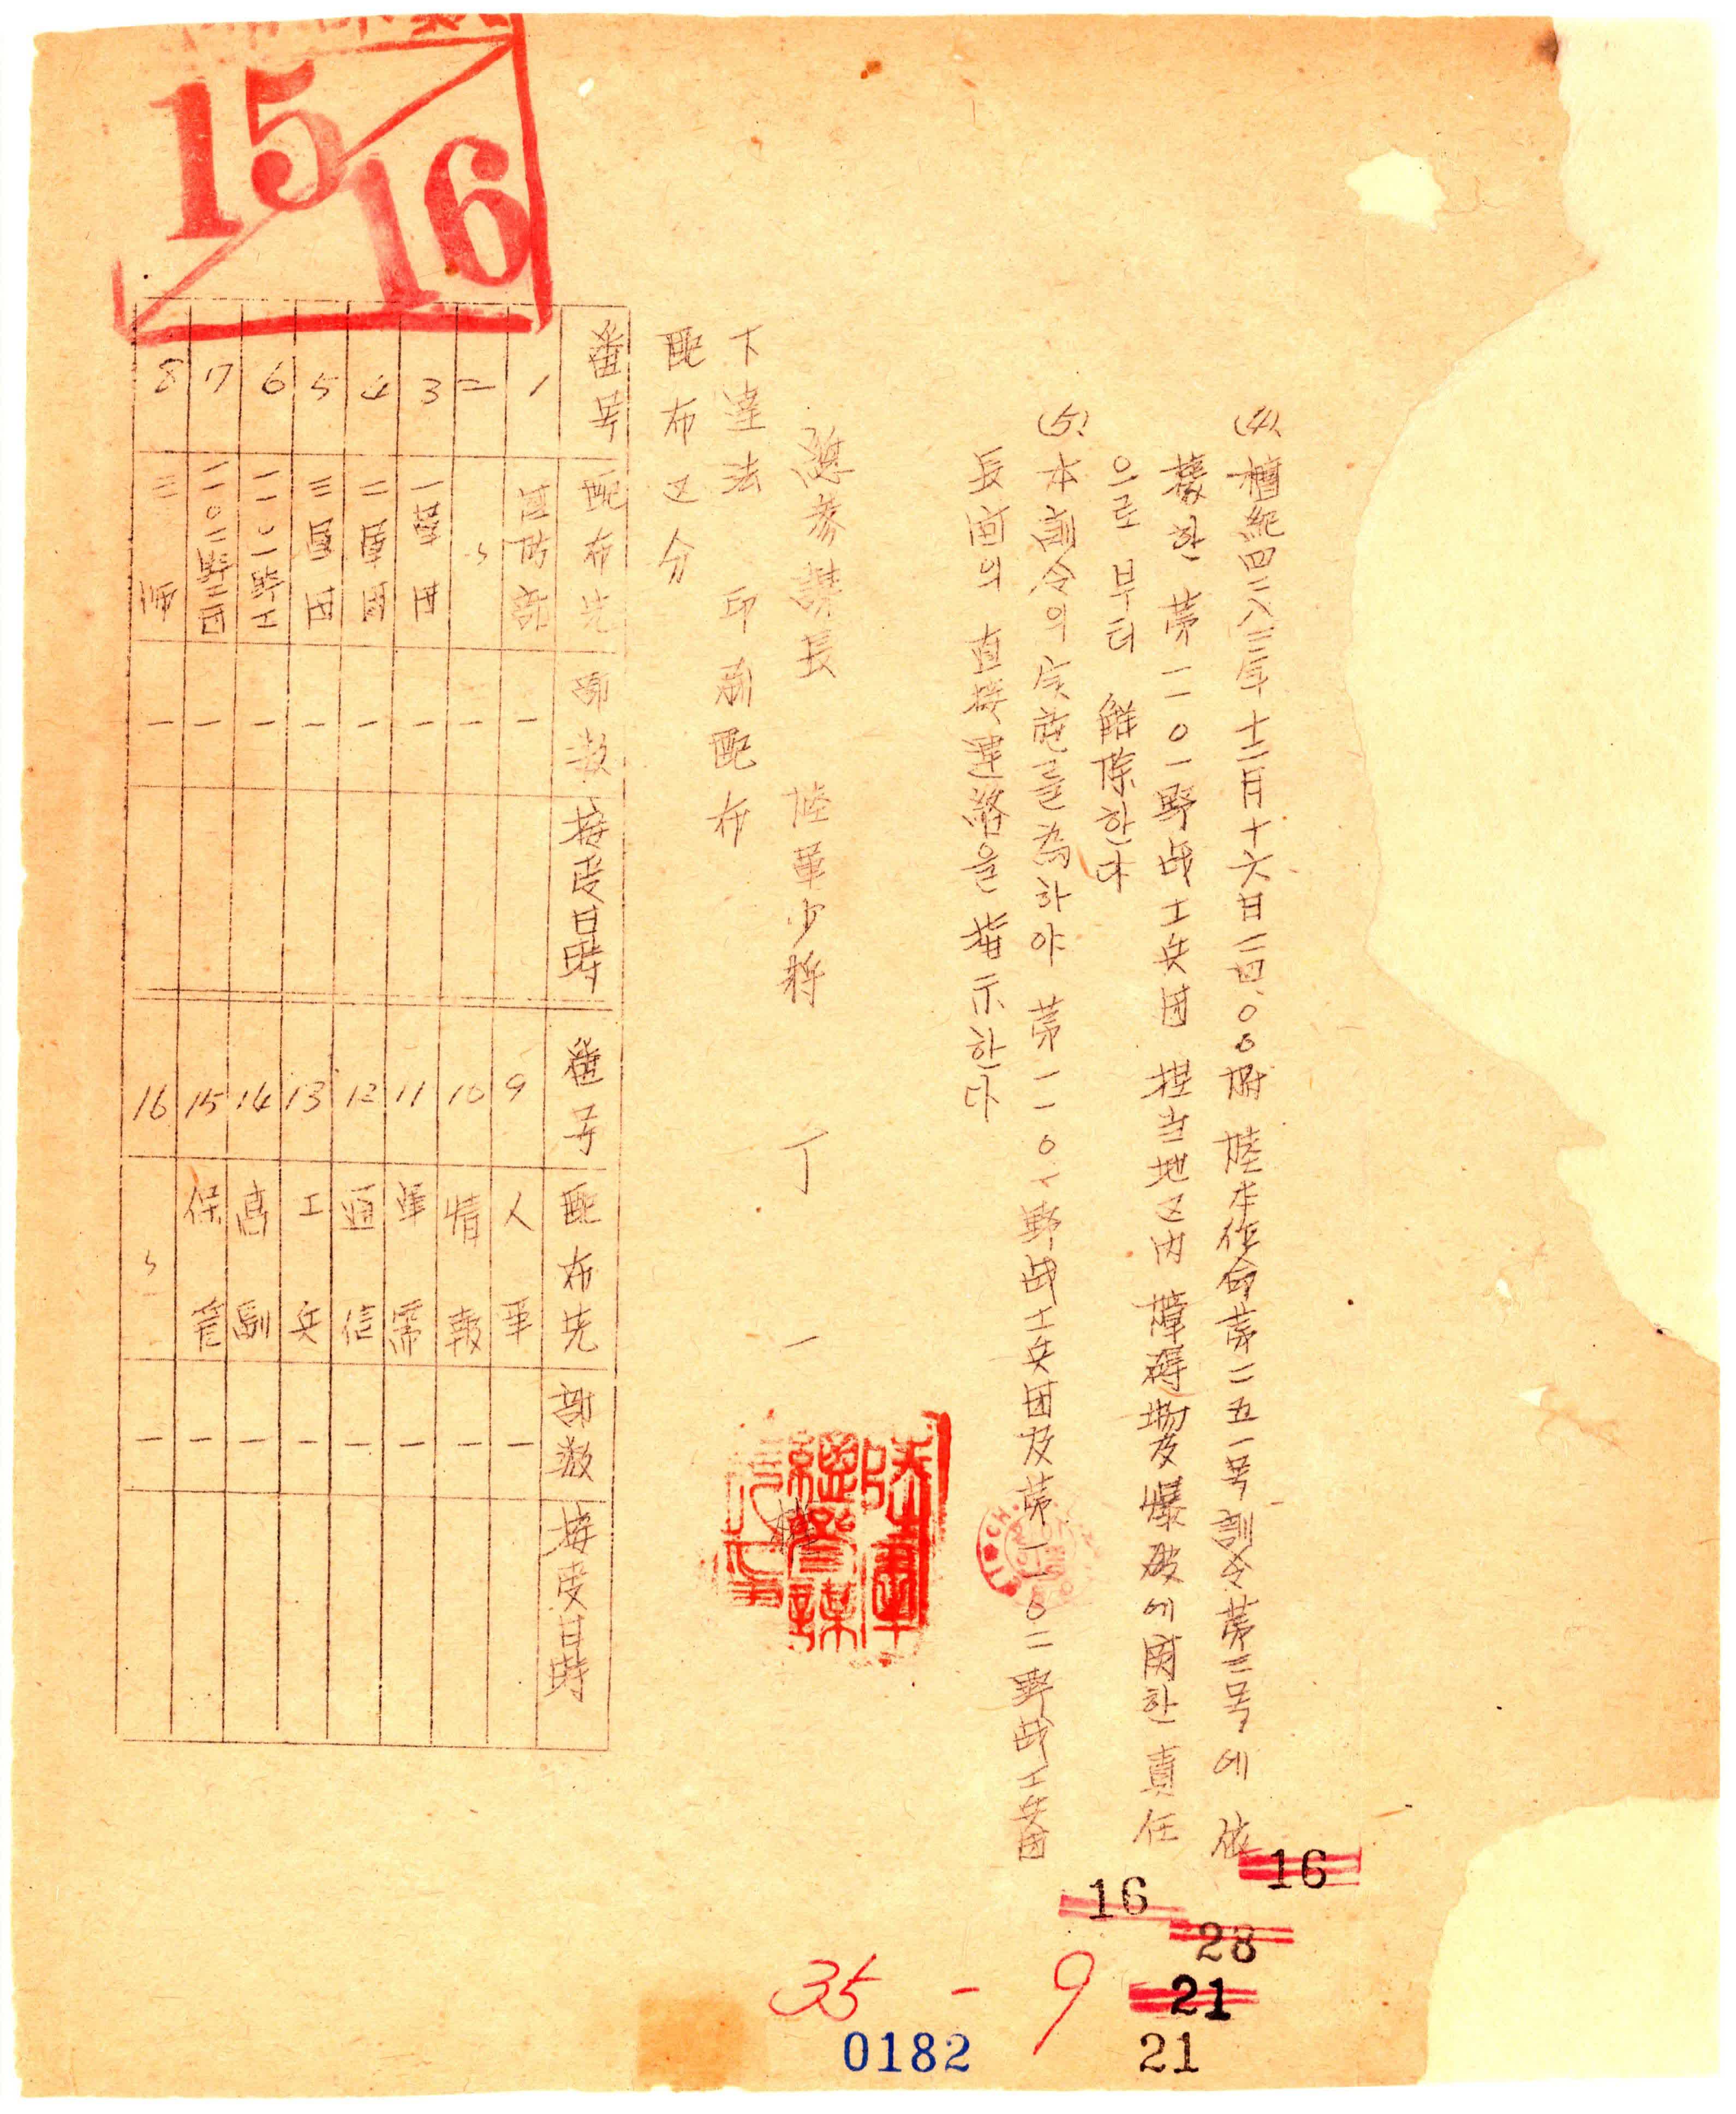 (4) 檀紀四二八三年十二月十六日一四.〇〇附 陸本作命第二五一号 訓令第三号에 依
據한 第一一〇一野战工兵団 担当地区内 障碍物及爆破에 関한 責任
으로 부터 解除한다
(5) 本訓令의 実施를 為하야 第一一〇一野战工兵団及第一一〇二野战工兵団
長間의 直接連絡을 指示한다
總參謀長 陸軍少将 丁 一 權
下達法 印刷配布
配布区分
番号 配布先 部数 接受日時 番号 配布先 部数 接受日時
1 国防部 一 9 人事 一
二 〃 一 10 情報 一
3 一軍団 一 11 軍需 一
4 二軍団 一 12 通信 一
5 三軍団 一 13 工兵 一
6 一一〇一野工 一 14 高副 一
7 一一〇二野工団 一 15 保管 一
8 三師 一 16 〃 一
15/16
陸軍總參謀
16
16
28
21
21
35 - 9
0182